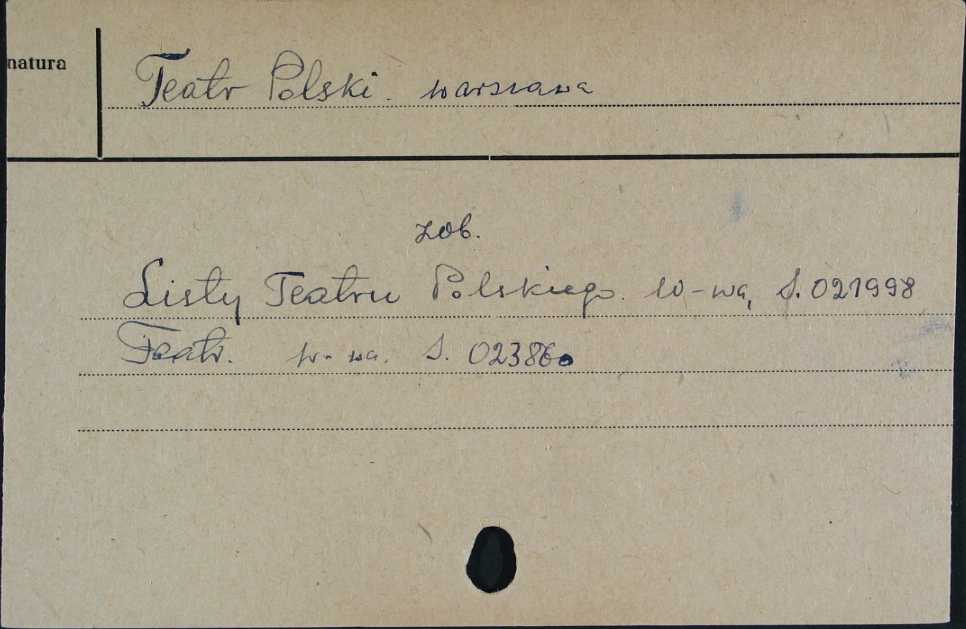 natura
Teatr Polski. Warszawa
zob.
Listy Teatru Polskiego. W-wa, S. 021998
Teatr. W-wa. S. 023860